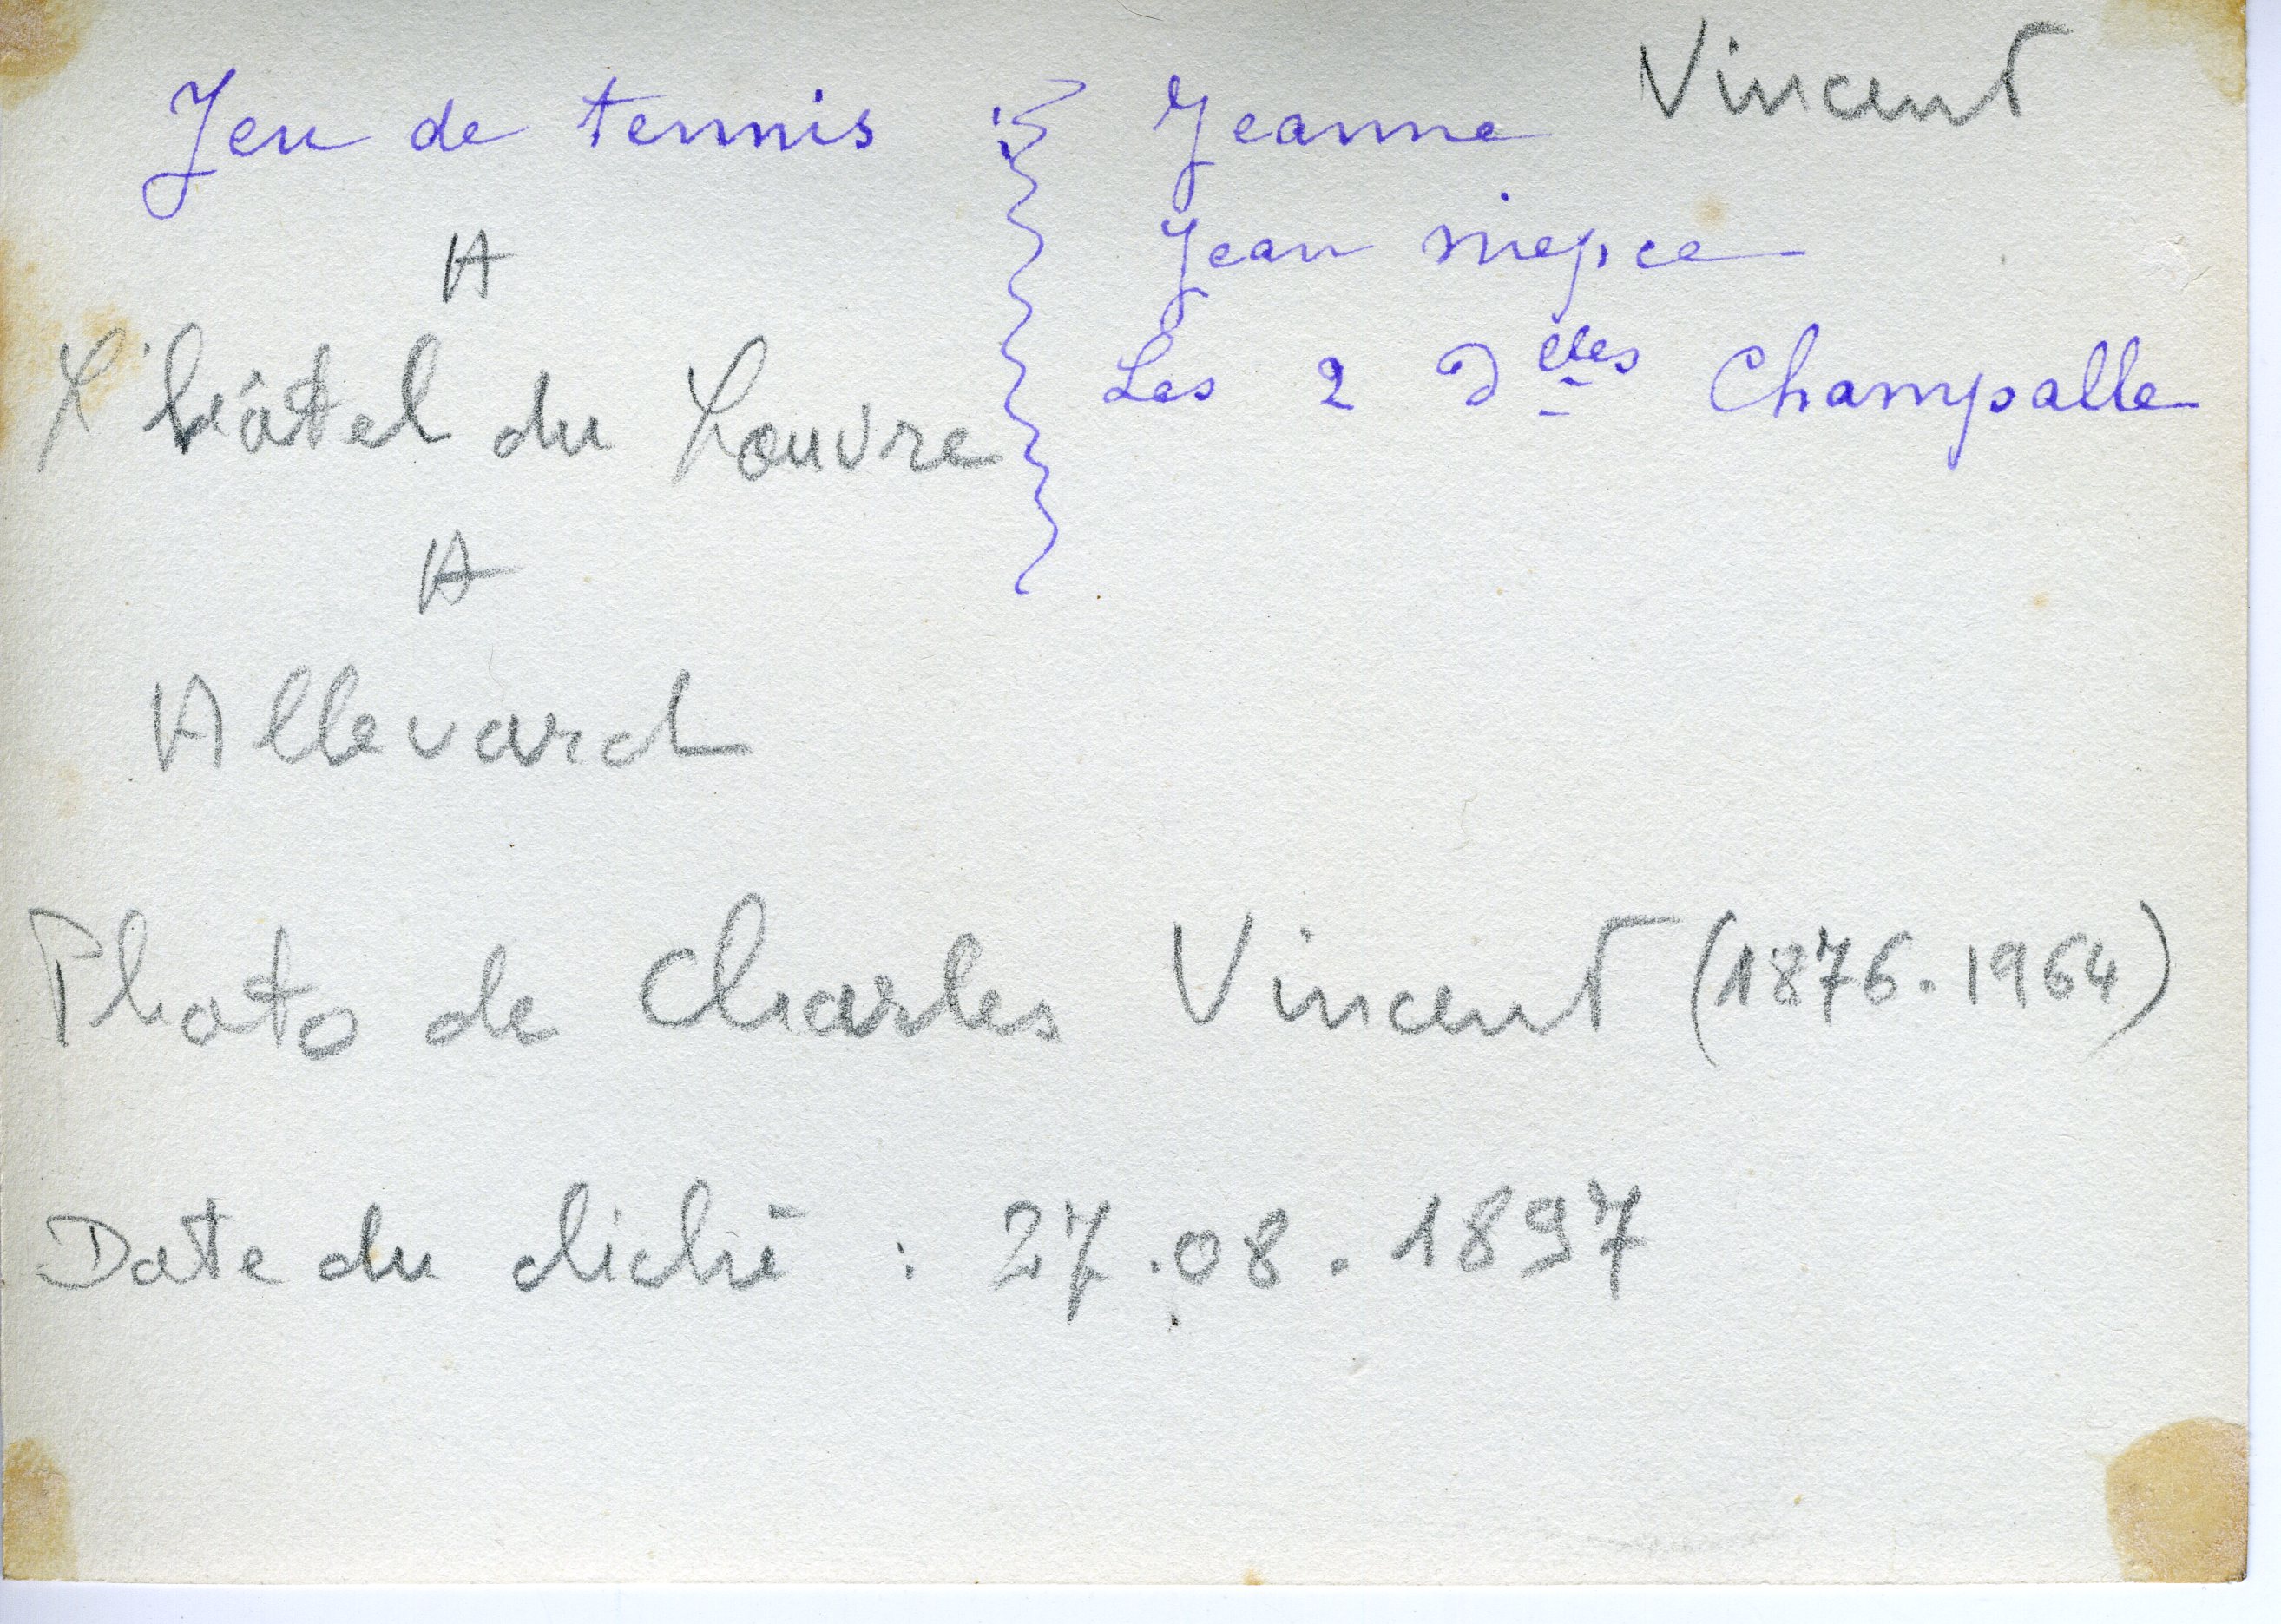 Jeu de tennis : Jeanne Vincent
Jean Niepce
Les 2 Delles Champalle
A
L'hôtel du Louvre
A
Allevard
Photo de Charles Vincent (1876.1964)
Date du cliché : 27.08.1897